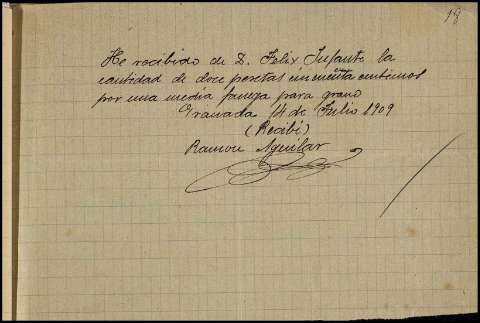 18
He recibido de D. Felix Infante la
cantidad de doce pesetas cincuenta centimos
por una media fanega para grano
Granada 14 de Julio 1909
(Recibí)
Ramon Aguilar